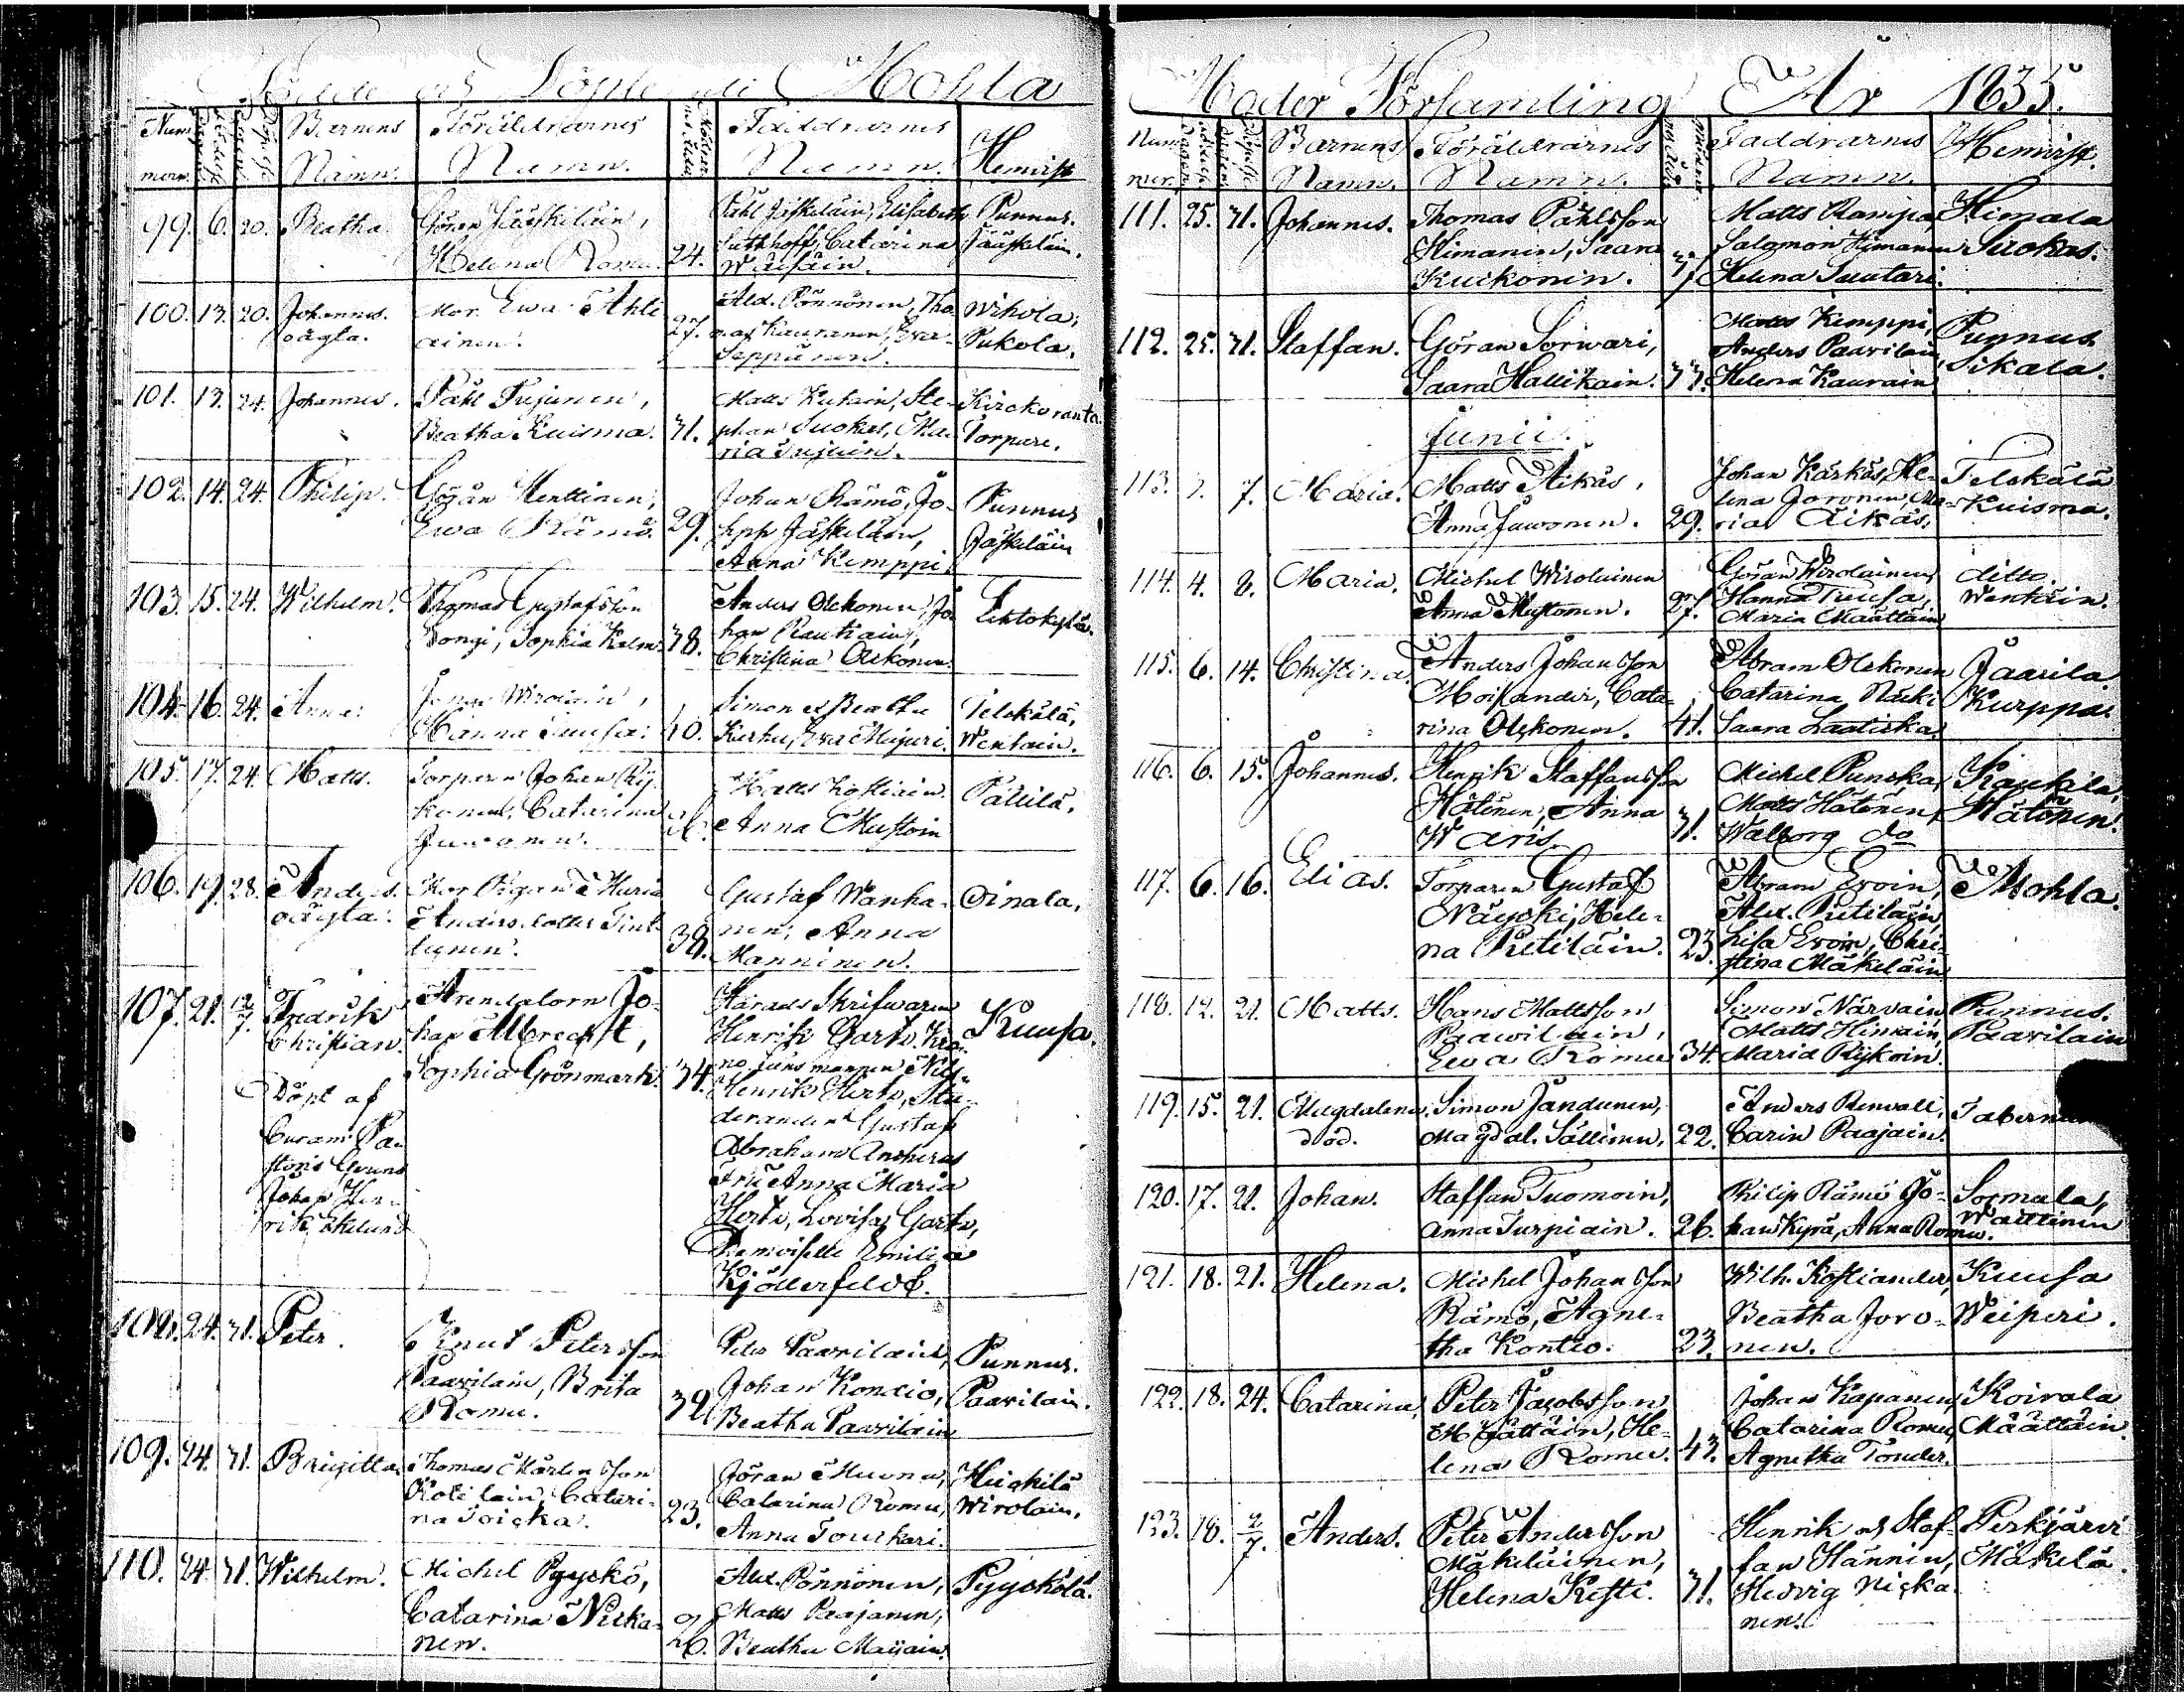 Mohla
Barnens
Namn.
Föräldrarnes
Namn.
Faddrarnes
Namn.
Hemvist
99. 6. 20. Beatha
Helena Romu. 24.
Catarina
Punnus.
Jääskeläin.
100. 13. 20. Johannes.
oägta.
Mor. Ewa Ahli
ainen. 27.
Alex. Pönnönen, Tho-
mas Kauranen, Eva
Seppänen.
Wihola,
Pukola.
101. 13. 24. Johannes.
Påhl Tujunen,
Beatha Kuisma. 31.
Matts Kukain, Ste-
phan Suokas, Ma-
ria Tujuin.
Kirckoranta
Torpare.
102. 14. 24. Philip.
Göran Henttinen,
Ewa Rämö. 29.
Johan Rämö, Jo-
seph Jäskeläin,
Anna Kemppi
Punnus
Jäskeläin
103. 15. 24. Wilhelm.
Thomas Gustafsson
Pongi, Sophia Kalm. 38.
Anders Olckonen, Jo-
han Rautiain,
Christina Olckonen.
Lehtokylä.
104. 16. 24. Anna.
Hanna Tuusa. 40.
Simon & Beatha
Kerhu, Eva Mujuri.
Telckälä,
Wentäin.
105. 17. 24. Matts.
Torparen Johan Ryj-
konen, Catarina
Juwonen.
Matts Kostiain.
Anna Mustoin
Pällilä.
106. 19. 28. Anders.
oägta.
Mor Pigan Maria
Andersdotter Tint-
tunen. 38.
Gustaf Wanha-
nen, Anna
Manninen.
Oinala,
107. 21. Fredrik
Christian.
Döpt af
Curam Pa-
storis Gerens
Johan Hen-
rik Ekelund
Arendatorn Jo-
han Albrecht,
Sophia Grönmark. 34.
Härads Skrifwaren
Henrik Gartz, Kro-
no Länsmannen Nils
Henrik Hertz, Stu-
deranden Gustaf
Abraham Ancherus
Fru Anna Maria
Hertz, Lovisa Gartz,
Demoiselle Emilia
Kjöllerfeldt.
Kuusa.
108. 24. 31. Peter.
Knut Petersson
Paavilain, Brita
Romu. 32.
Peter Paavilain,
Johan Kondio,
Beatha Paavilain
Punnus.
Paavilain.
109. 24. 31. Brigitta.
Thomas Mårtensson
Kotilain, Catari-
na Toiska. 23.
Göran Muona,
Catarina Romu,
Anna Tourkari.
Heickilä
Wirolain.
110. 24. 31. Wilhelm.
Michel Pyyckö,
Catarina Nicka-
nen. 26.
Alex. Pönnönen,
Matts Paajanen,
Beatha Majain.
Pyyckölä.
Moder Församling År 1835.
Barnens
Namn.
Föräldrarnes
Namn.
Faddrarnes
Namn.
Hemvist.
111. 25. 31. Johannes.
Thomas Påhlsson
Himanen, Saara
Kuikonin. 37
Matts Rampa,
Salomon Himanen
Helena Suutari.
Himala
Suokas.
112. 25. 31. Staffan.
Göran Sorwari,
Saara Hallikain. 33.
Matts Kemppi,
Anders Paavilain,
Helena Kaurain
Punnus
Sikala.
Junii.
113. 3. 7. Maria.
Matts Äikäs,
Anna Juwonen. 29.
Johan Kärkäs, He-
lena Joronen, Ma-
ria Äikäs.
Telckälä
Kuisma.
114. 4. 8. Maria.
Michel Wirolainen
Anna Mustonen. 27.
Göran Wirolainen
Hanna Tuusa,
Maria Määttäin
ditto.
Wentäin.
115. 6. 14. Christina.
Anders Johansson
Moisander, Cata-
rina Olckonen. 41.
Abram Olckonen
Catarina Näcki
Saara Laatickai
Jaarila
Kurppa.
116. 6. 15. Johannes.
Henrik Staffansson
Hätinen, Anna
Waris. 31.
Michel Puncka,
Matts Hätinen,
Walborg do
Kaukila,
Hätönen.
117. 6. 16. Elias.
Torparen Gustaf
Näycki, Hele-
na Pietiläin. 23.
Abram Eroin,
Alex. Pietiläin,
Lisa Eroin, Chri-
stina Mäkeläin
Mohla.
118. 12. 21. Matts.
Hans Mattsson
Paawilain,
Ewa Romu 34.
Simon Närwäin
Matts Himain,
Maria Ryjkoin.
Punnus.
Paavilain
119. 15. 21. Magdalena,
död.
Simon Jandunen,
Magdal. Sällinen. 22.
Anders Renvall,
Carin Paajain.
120. 17. 21. Johan.
Staffan Tuomoin,
Anna Turpiain. 26.
Philip Rämö Jo-
han Kyrä, Anna Romu.
Sormula,
Wättinen
121. 18. 21. Helena.
Michel Johansson
Rämö, Agne-
tha Kontio. 23.
Wilh. Kostiander,
Beatha Joro-
nen.
Kuusa
Weiperi.
122. 18. 24. Catarina,
Peter Jacobsson
Määttäin, He-
lena Romu. 43.
Johan Kapanen,
Catarina Romu,
Agnetha Tonder.
Koirala
Määttäin
123. 18. 2/7. Anders.
Peter Andersson
Mäkeläinen,
Helena Kesti. 31.
Henrik och Staf-
fan Hännin,
Hedvig Nicka
nen.
Perkjärvi
Mäkelä.